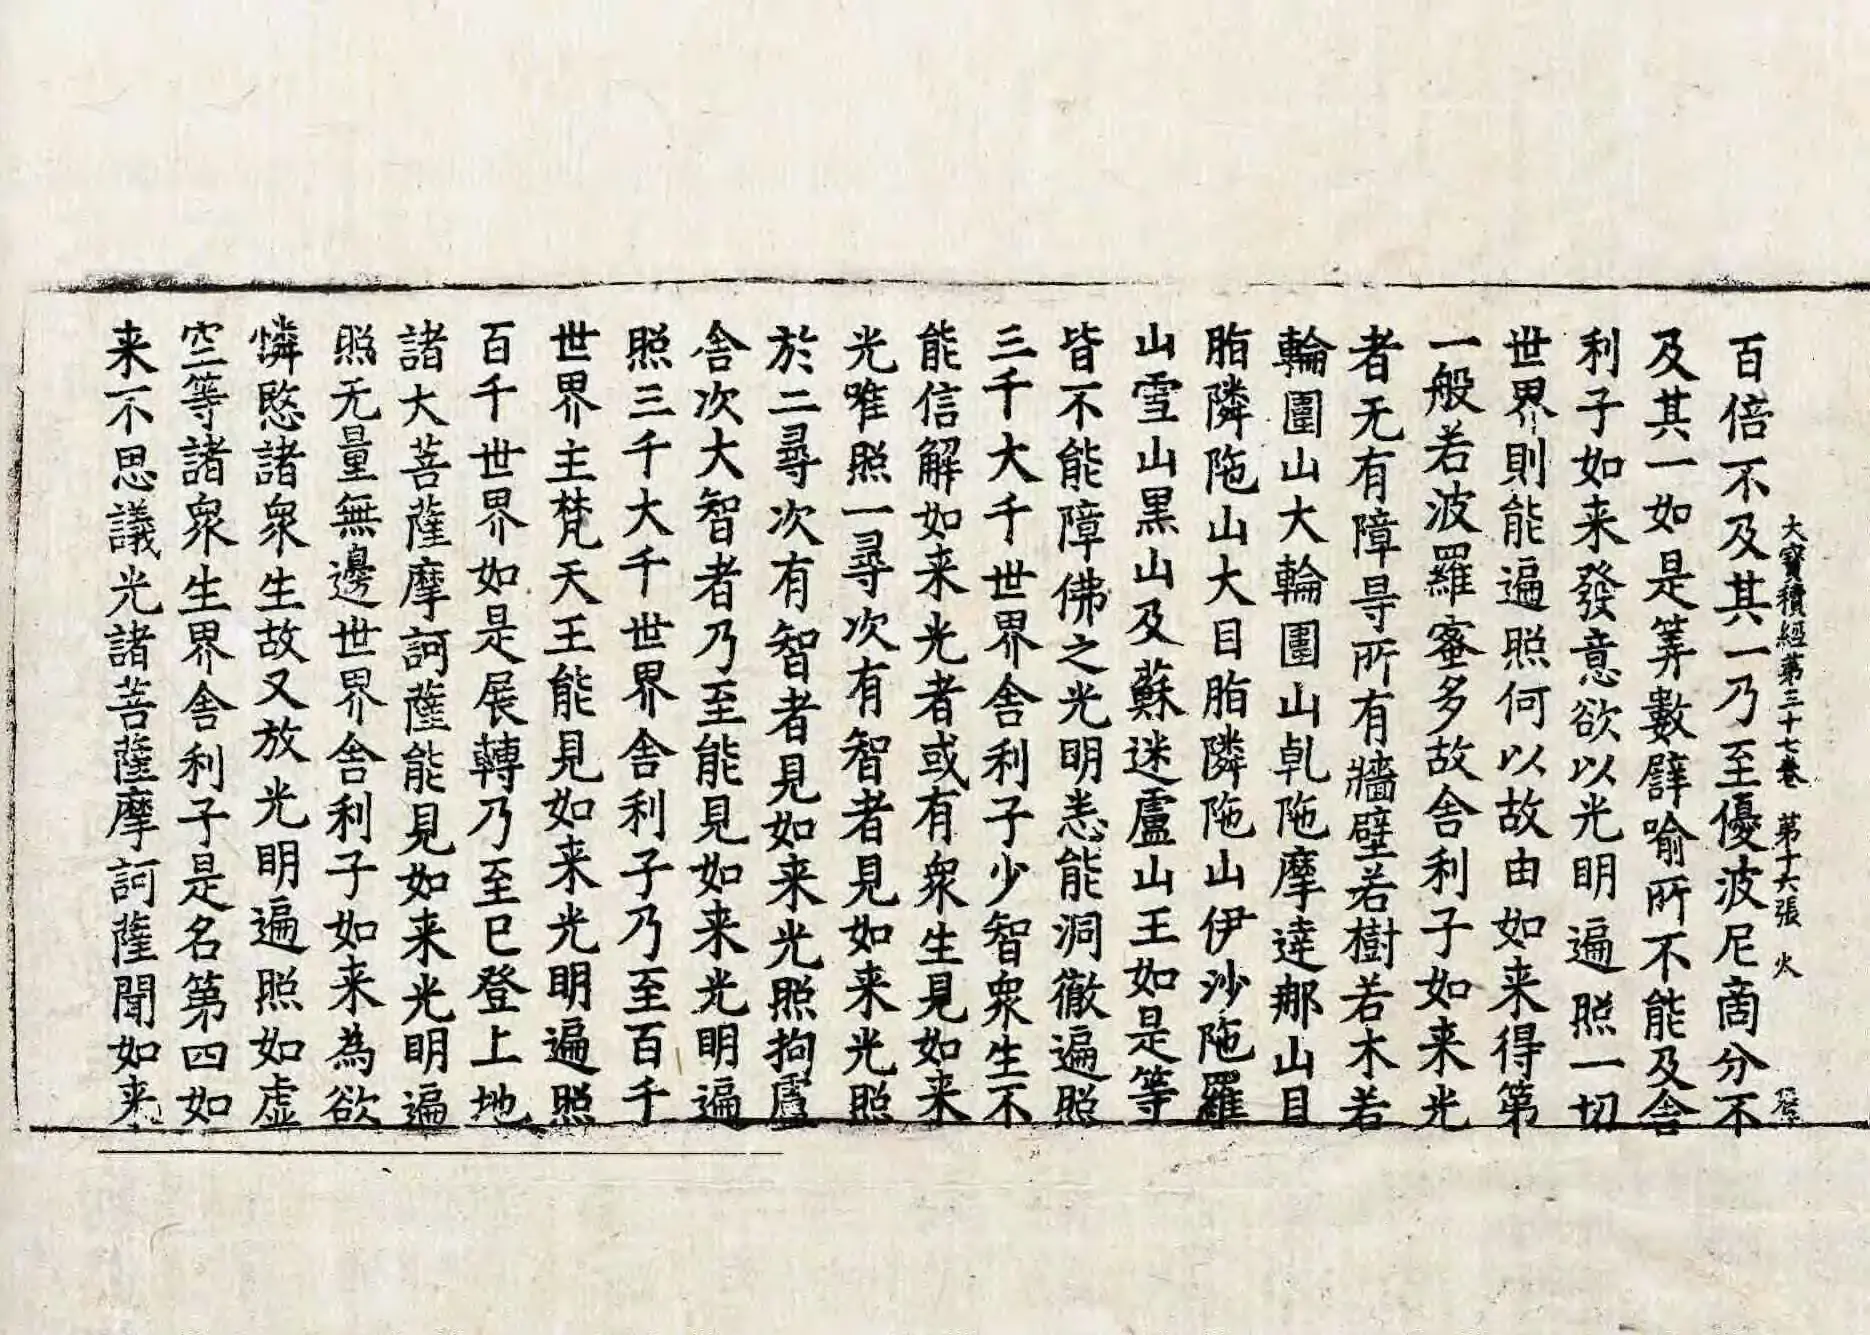 大寶積經第三十七卷 第十六張 火
百倍不及其一乃至優波尼啇分不
及其一如是筭數譬喻所不能及舎
利子如来發意欲以光明遍照一切
世界則能遍照何以故由如来得第
一般若波羅蜜多故舎利子如来光
者无有障㝵所有牆壁若樹若木若
輪圍山大輪圍山乹陁摩達那山目
脂隣陁山大目脂隣陁山伊沙陁羅
山雪山黒山及蘇迷盧山王如是等
皆不能障佛之光明悉能洞徹遍照
三千大千世界舎利子少智衆生不
能信解如来光者或有衆生見如来
光唯照一尋次有智者見如来光照
於二尋次有智者見如来光照拘盧
舎次大智者乃至能見如来光明遍
照三千大千世界舎利子乃至百千
世界主梵天王能見如来光明遍照
百千世界如是展轉乃至已登上地
諸大菩薩摩訶薩能見如来光明遍
照无量無邊世界舎利子如来為欲
憐愍諸衆生故又放光明遍照如虚
空等諸衆生界舎利子是名第四如
来不思議光諸菩薩摩訶薩聞如来